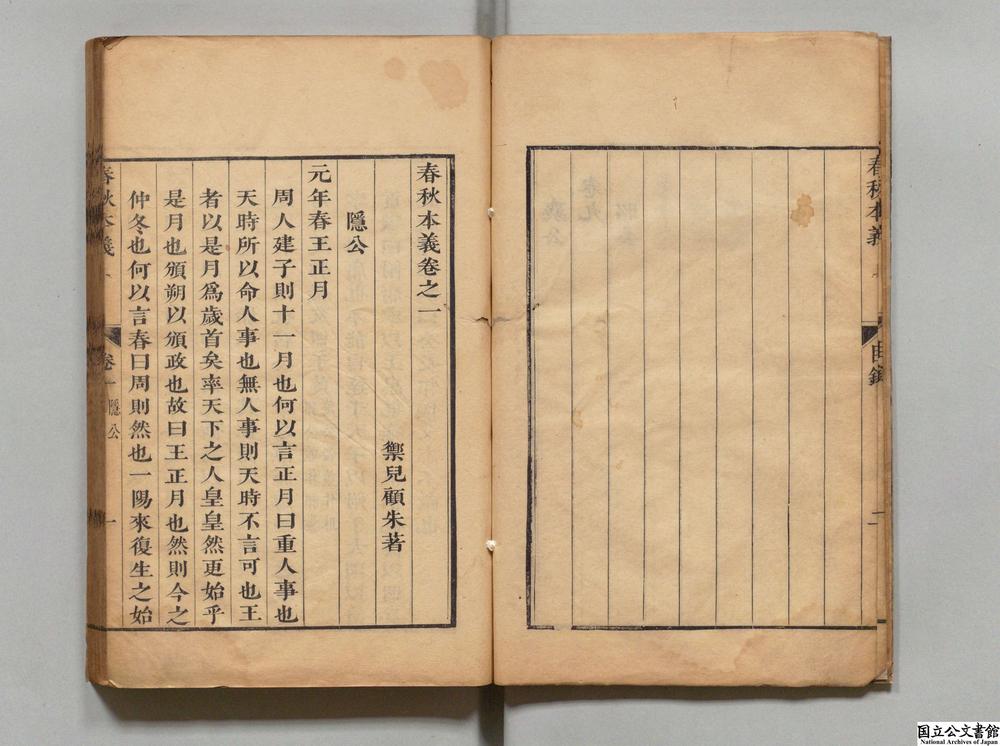 春秋本義
目録
二
春秋本義卷之一
禦兒顧朱著
隱公
元年春王正月
周人建子則十一月也何以言正月曰重人事也
天時所以命人事也無人事則天時不言可也王
者以是月爲歲首矣率天下之人皇皇然更始乎
是月也頒朔以頒政也故曰王正月也然則今之
仲冬也何以言春曰周則然也一陽來復生之始
春秋本義
卷一
隱公
一
国立公文書館
National Archives of Japan